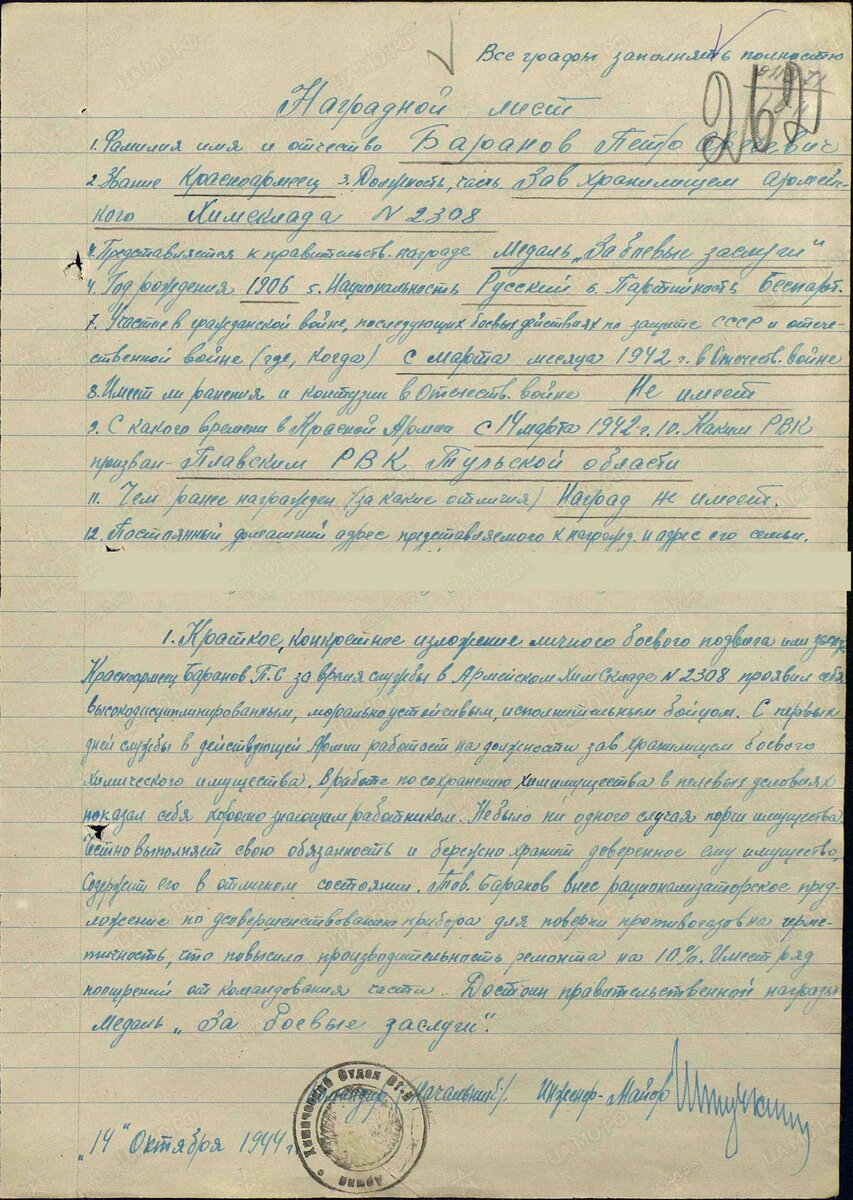 Все графы заполнять полностью
Наградной лист
1. Фамилия имя и отчество Баранов Петр
2. Звание Красноармеец 3. Должность, часть Зав хранилищем армейс-
кого Химсклада N 2308
4. Представляется к правительств. награде Медаль „За боевые заслуги"
4. Год рождения 1906 5. Национальность Русский 6. Партийность Беспарт.
7. Участие в гражданской войне, последующих боевых действиях по защите СССР и отече-
ственной войне (где, когда) с марта месяца 1942 г. в Отечеств. войне
8. Имеет ли ранения и контузии в Отечеств. войне Не имеет
9. С какого времени в Красной Армии с 14 марта 1942 г. 10. Каким РВК
призван - Плавским РВК Тульской области
11. Чем ранее награжден (за какие отличия) Наград не имеет.
12. Постоянный домашний адрес представляемого к награжд. и адрес его семьи.
1. Краткое, конкретное изложение личного боевого подвига или заслуг.
Красноармеец Баранов П.С за время службы в Армейском ХимСкладе N 2308 проявил себя
высокодисциплинированным, морально устойчивым, исполнительным бойцом. С первых
дней службы в действующей Армии работает на должности зав хранилищем боевого
химического имущества. В работе по сохранению химимущества в полевых условиях
показал себя хорошо знающим работником. Небыло ни одного случая порчи имущества
Честно выполняет свою обязанность и бережно хранит доверенное ему имущество,
Содержит его в отличном состоянии. Тов. Баранов внес рационализаторское пред-
ложение по усовершенствованию прибора для поверки противогазов на герме-
тичность, что повысило производительность ремонта на 10%. Имеет ряд
поощрений от командования части. Достоин правительственной награды
Медаль „За боевые заслуги".
Командир /Начальник/. Инженер-Майор
Химический Отдел Армии
„14" Октября 1944 г.